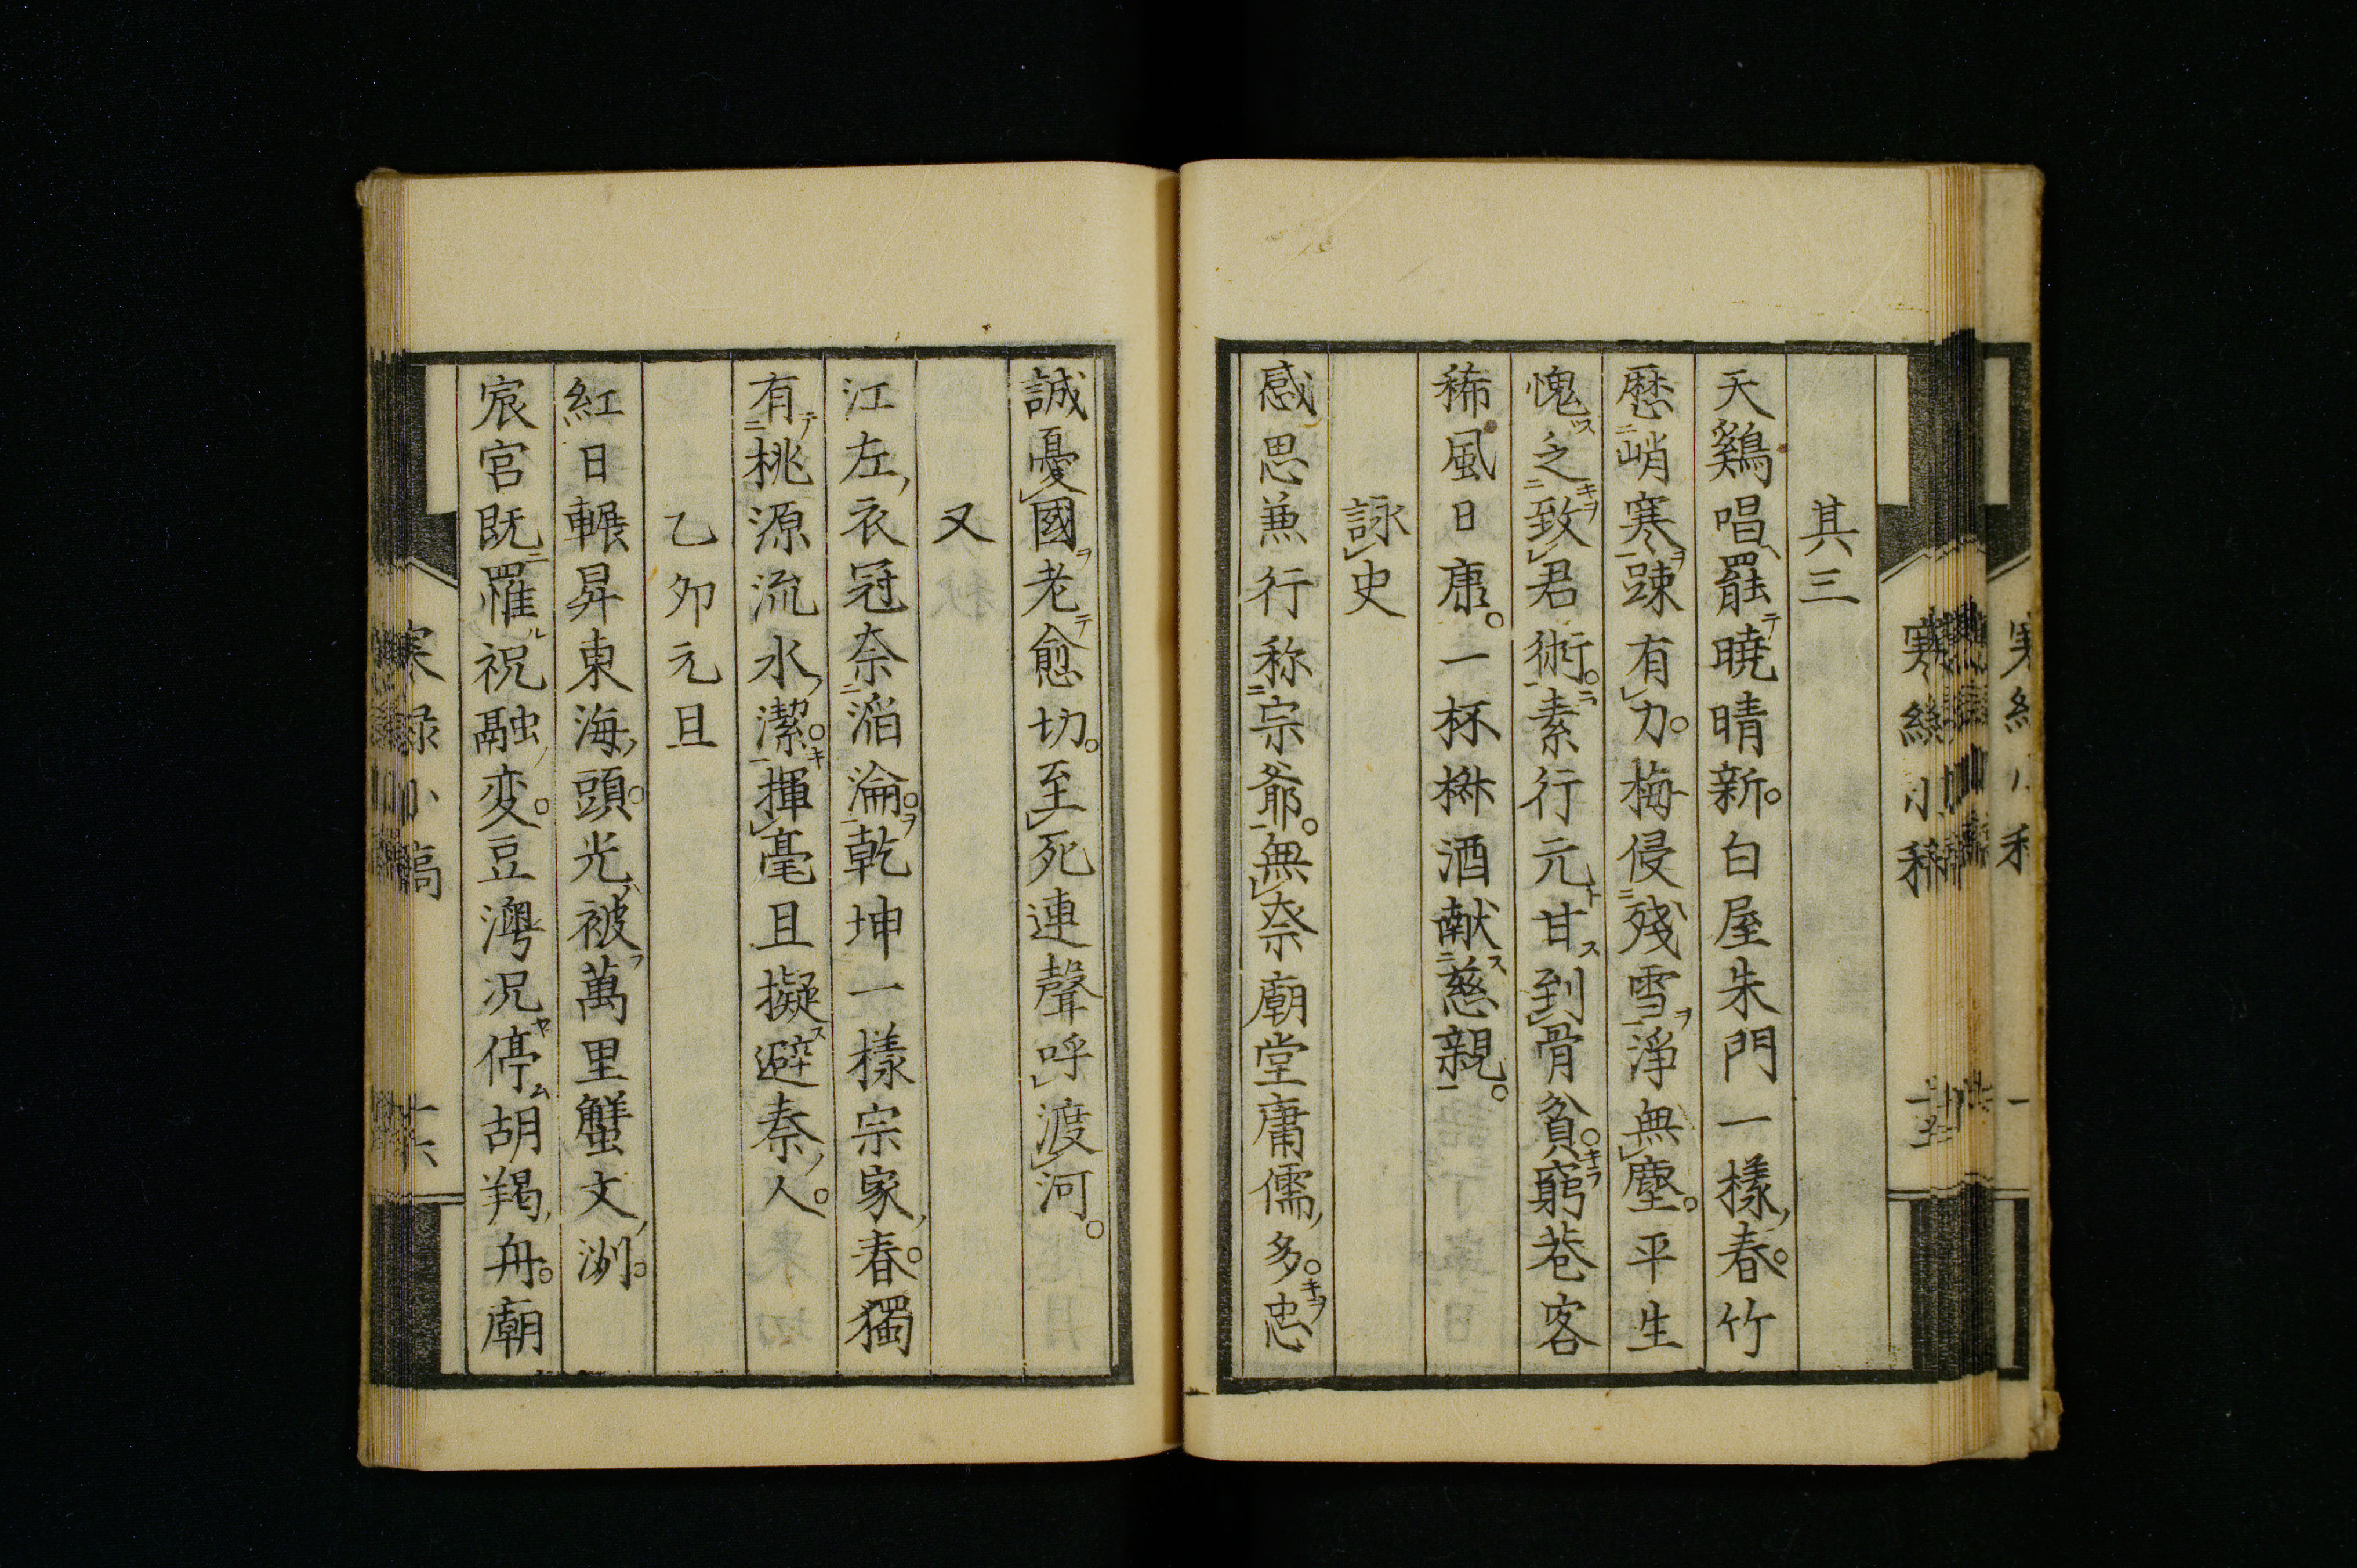 其三
天鷄唱罷曉晴新白屋朱門一樣春竹
歴峭寒踈有力梅侵殘雪淨無塵平生
愧乏致君術素行元甘到骨貧窮巷客
稀風日康一杯椕酒献慈親
詠史
感思兼行称宗爺無奈廟堂庸儒多忠
誠憂國老愈切至死連聲呼渡河
又
江左衣冠奈淊淪乾坤一樣宗家春獨
有桃源流水潔揮毫且擬避秦人
乙夘元旦
紅日輾昇東海頭光被萬里蟹文洌
宸官既罹祝融変豆灣况停胡羯舟廟